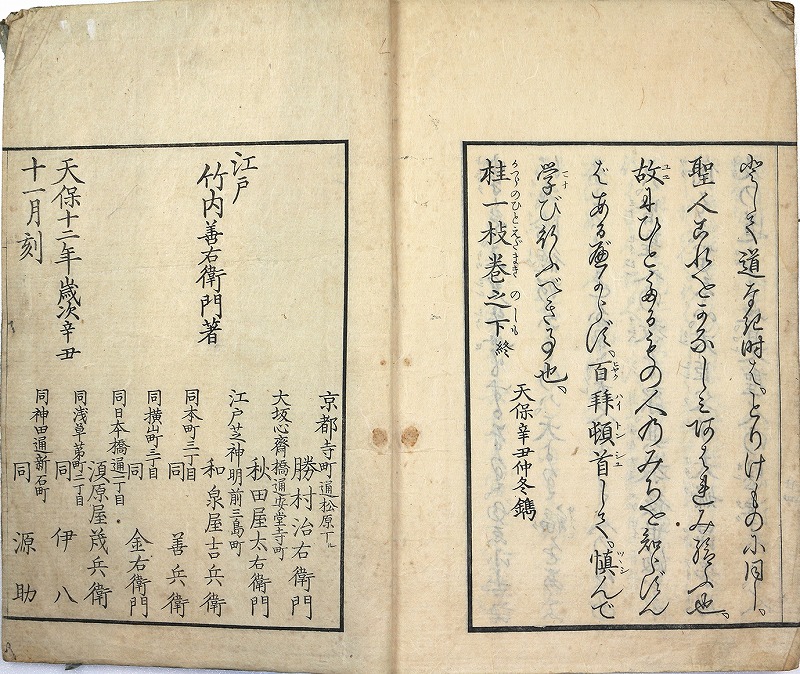 道なき時は、とりけものに同し。
聖人これをかなしミ阿はれみ給ふ也。
故にひとたるもの人のみちを知らずん
ばあるべからず。百拜頓首して。慎んで
学び行ふべき事也。
桂一枝巻之下終
天保辛丑仲冬鐫
江戸
竹内善右衛門著
天保十二年歳次辛丑
十一月刻
京都寺町通松原下ル
勝村治右衛門
大坂心齋橋通安堂寺町
秋田屋太右衛門
江戸芝神明前三島町
和泉屋吉兵衛
同本町三丁目
同 善兵衛
同横山町三丁目
同 金右衛門
同日本橋通二丁目
須原屋茂兵衛
同浅草茅町二丁目
同 伊八
同神田通新石町
同 源助